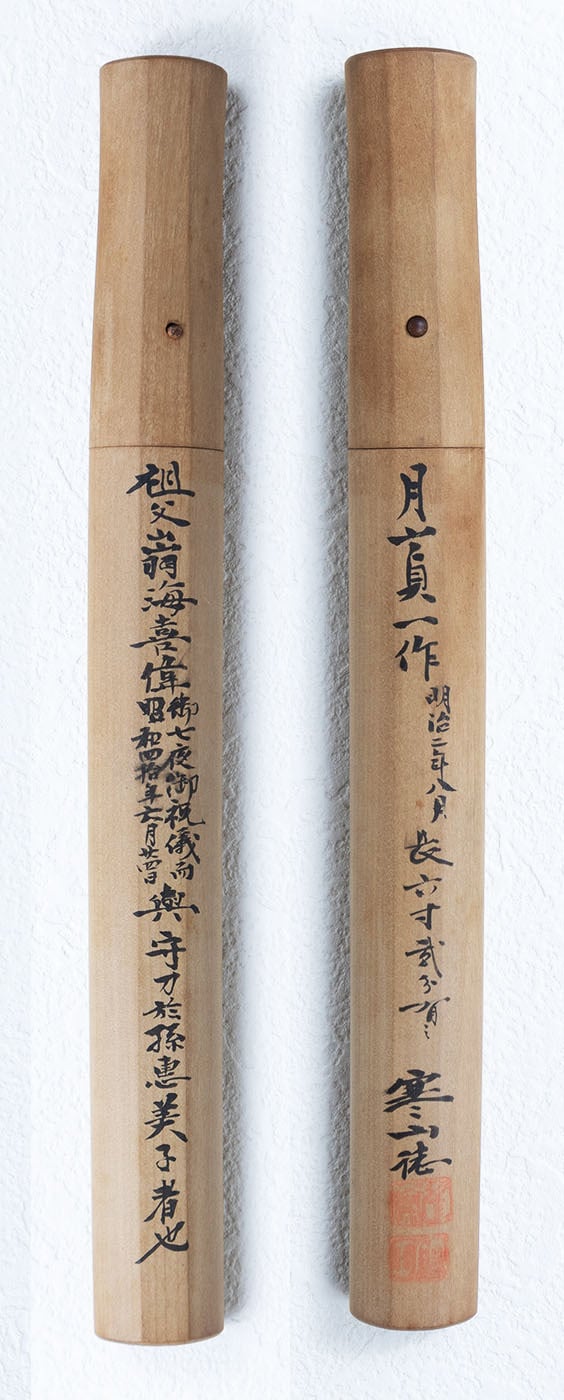 月山貞一作
明治二年八月
長六寸貳分有之
寒山誌
祖父嵡海喜偉
御七夜御祝儀而
昭和四拾年六月廿四日
與守刀於孫惠美子者也